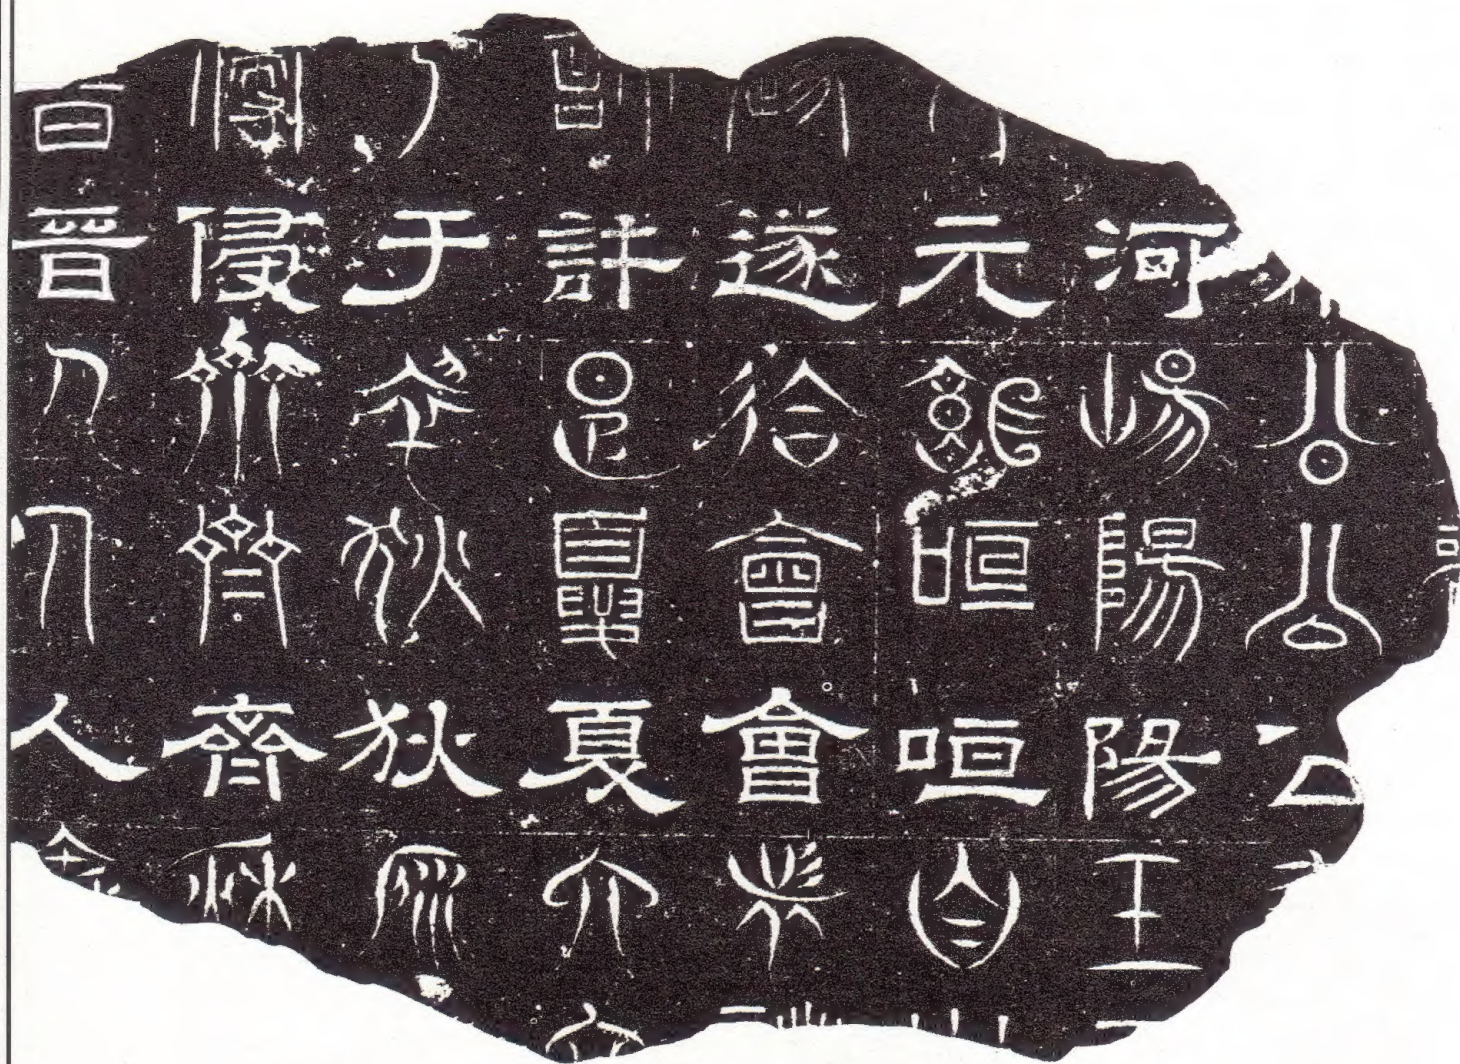 公公公
河陽陽陽壬
元咺咺咺自
遂遂會會會諸
許夏夏夏六六
于于狄狄狄泉
侵侵齊齊齊秋
晉晉人人人